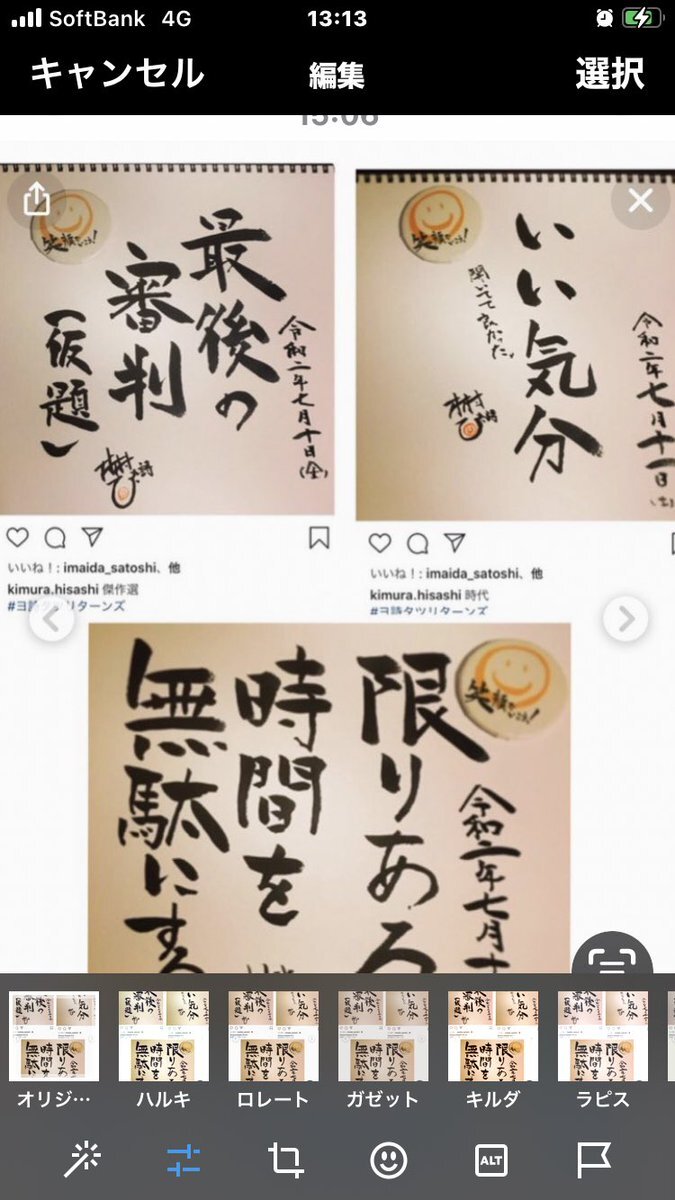 SoftBank 4G 13:13
キャンセル 編集 選択
15:06
笑顔でいこう!
令和二年七月十日(金)
最後の
審判
(仮題)
いいね!: imaida_satoshi、他
kimura.hisashi 傑作選
#ヨ詩タツリターンズ
笑顔でいこう!
令和二年七月十一日(土)
いい気分
開いてて良かった。
いいね!: imaida_satoshi、他
kimura.hisashi 時代
#ヨ詩タツリターンズ
笑顔でいこう!
令和二年七月十
限りある
時間を
無駄にする
オリジ… ハルキ ロレート ガゼット キルダ ラピス
ALT